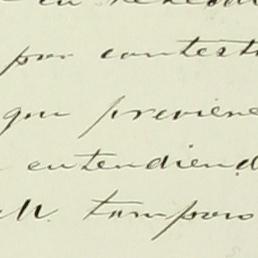 por contest
que previene
entendiend
M. tampoco